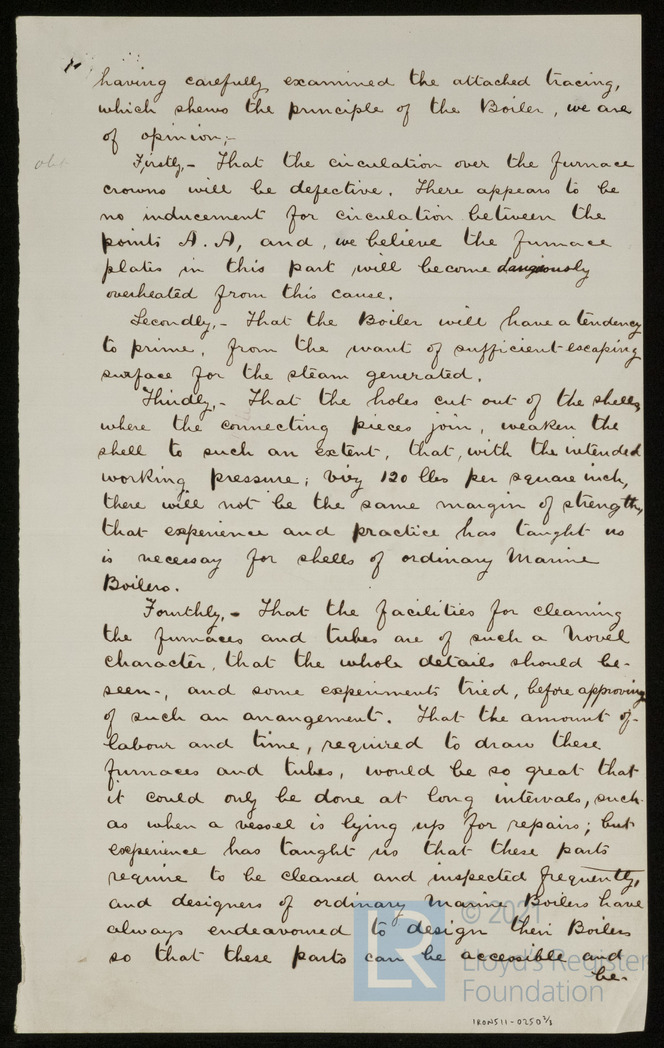 having carefully examined the attached tracing,
which shews the principle of the Boiler, we are
of opinion;-
Firstly,- That the circulation over the furnace
crowns will be defective. There appears to be
no inducement for circulation between the
points A. A, and, we believe the furnace
plates in this part will become dangerously
overheated from this cause.
Secondly,- That the Boiler will have a tendency
to prime, from the want of sufficient escaping
surface for the steam generated.
Thirdly,- That the holes cut out of the shells,
where the connecting pieces join, weaken the
shell to such an extent, that, with the intended
working pressure; vizy 120 lbs per square inch,
there will not be the same margin of strength,
that experience and practice has taught us
is necessay for shells of ordinary Marine
Boilers.
Fourthly,- That the facilities for cleaning
the furnaces and tubes are of such a novel
character, that the whole details should be-
seen-, and some experiments tried, before approving
of such an arrangement. That the amount of-
labour and time, required to draw these
furnaces and tubes, would be so great that
it could only be done at long intervals, such-
as when a vessel is lying up for repairs; but
experience has taught us that these parts
require to be cleaned and inspected frequently,
and designers of ordinary Marine Boilers have
always endeavoured to design their Boilers
so that these parts can be accessible and
be-
© 2021
LR
Lloyd's Register
Foundation
IRON511-0250 2/3